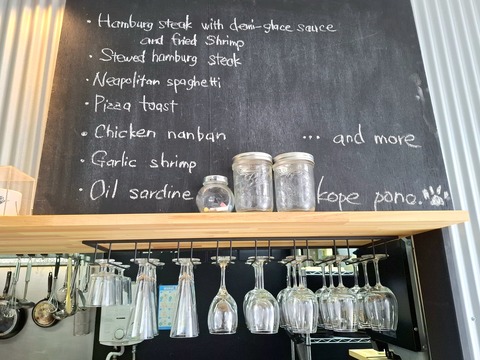 · Hamburg steak with demi-glace sauce
and fried shrimp
· Stewed hamburg steak
· Neapolitan spaghetti
· Pizza toast
· Chicken nanban
... and more
· Garlic shrimp
· Oil sardine
kope pono.